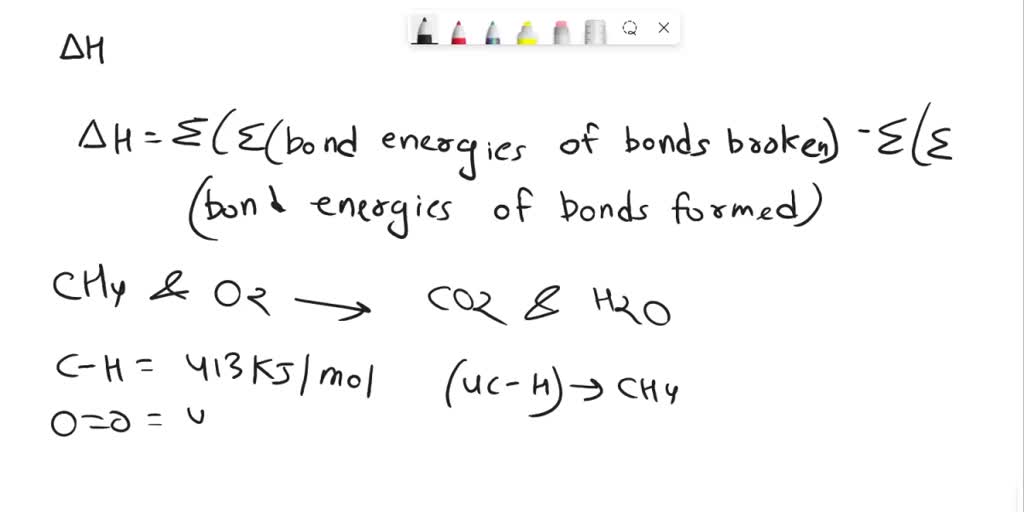 ΔH
ΔH = Σ(Σ(bond energies of bonds broken) - Σ(Σ
(bond energies of bonds formed)
CH4 & O2 → CO2 & H2O
C-H = 413 KJ/mol (4C-H) → CH4
O=O = 4